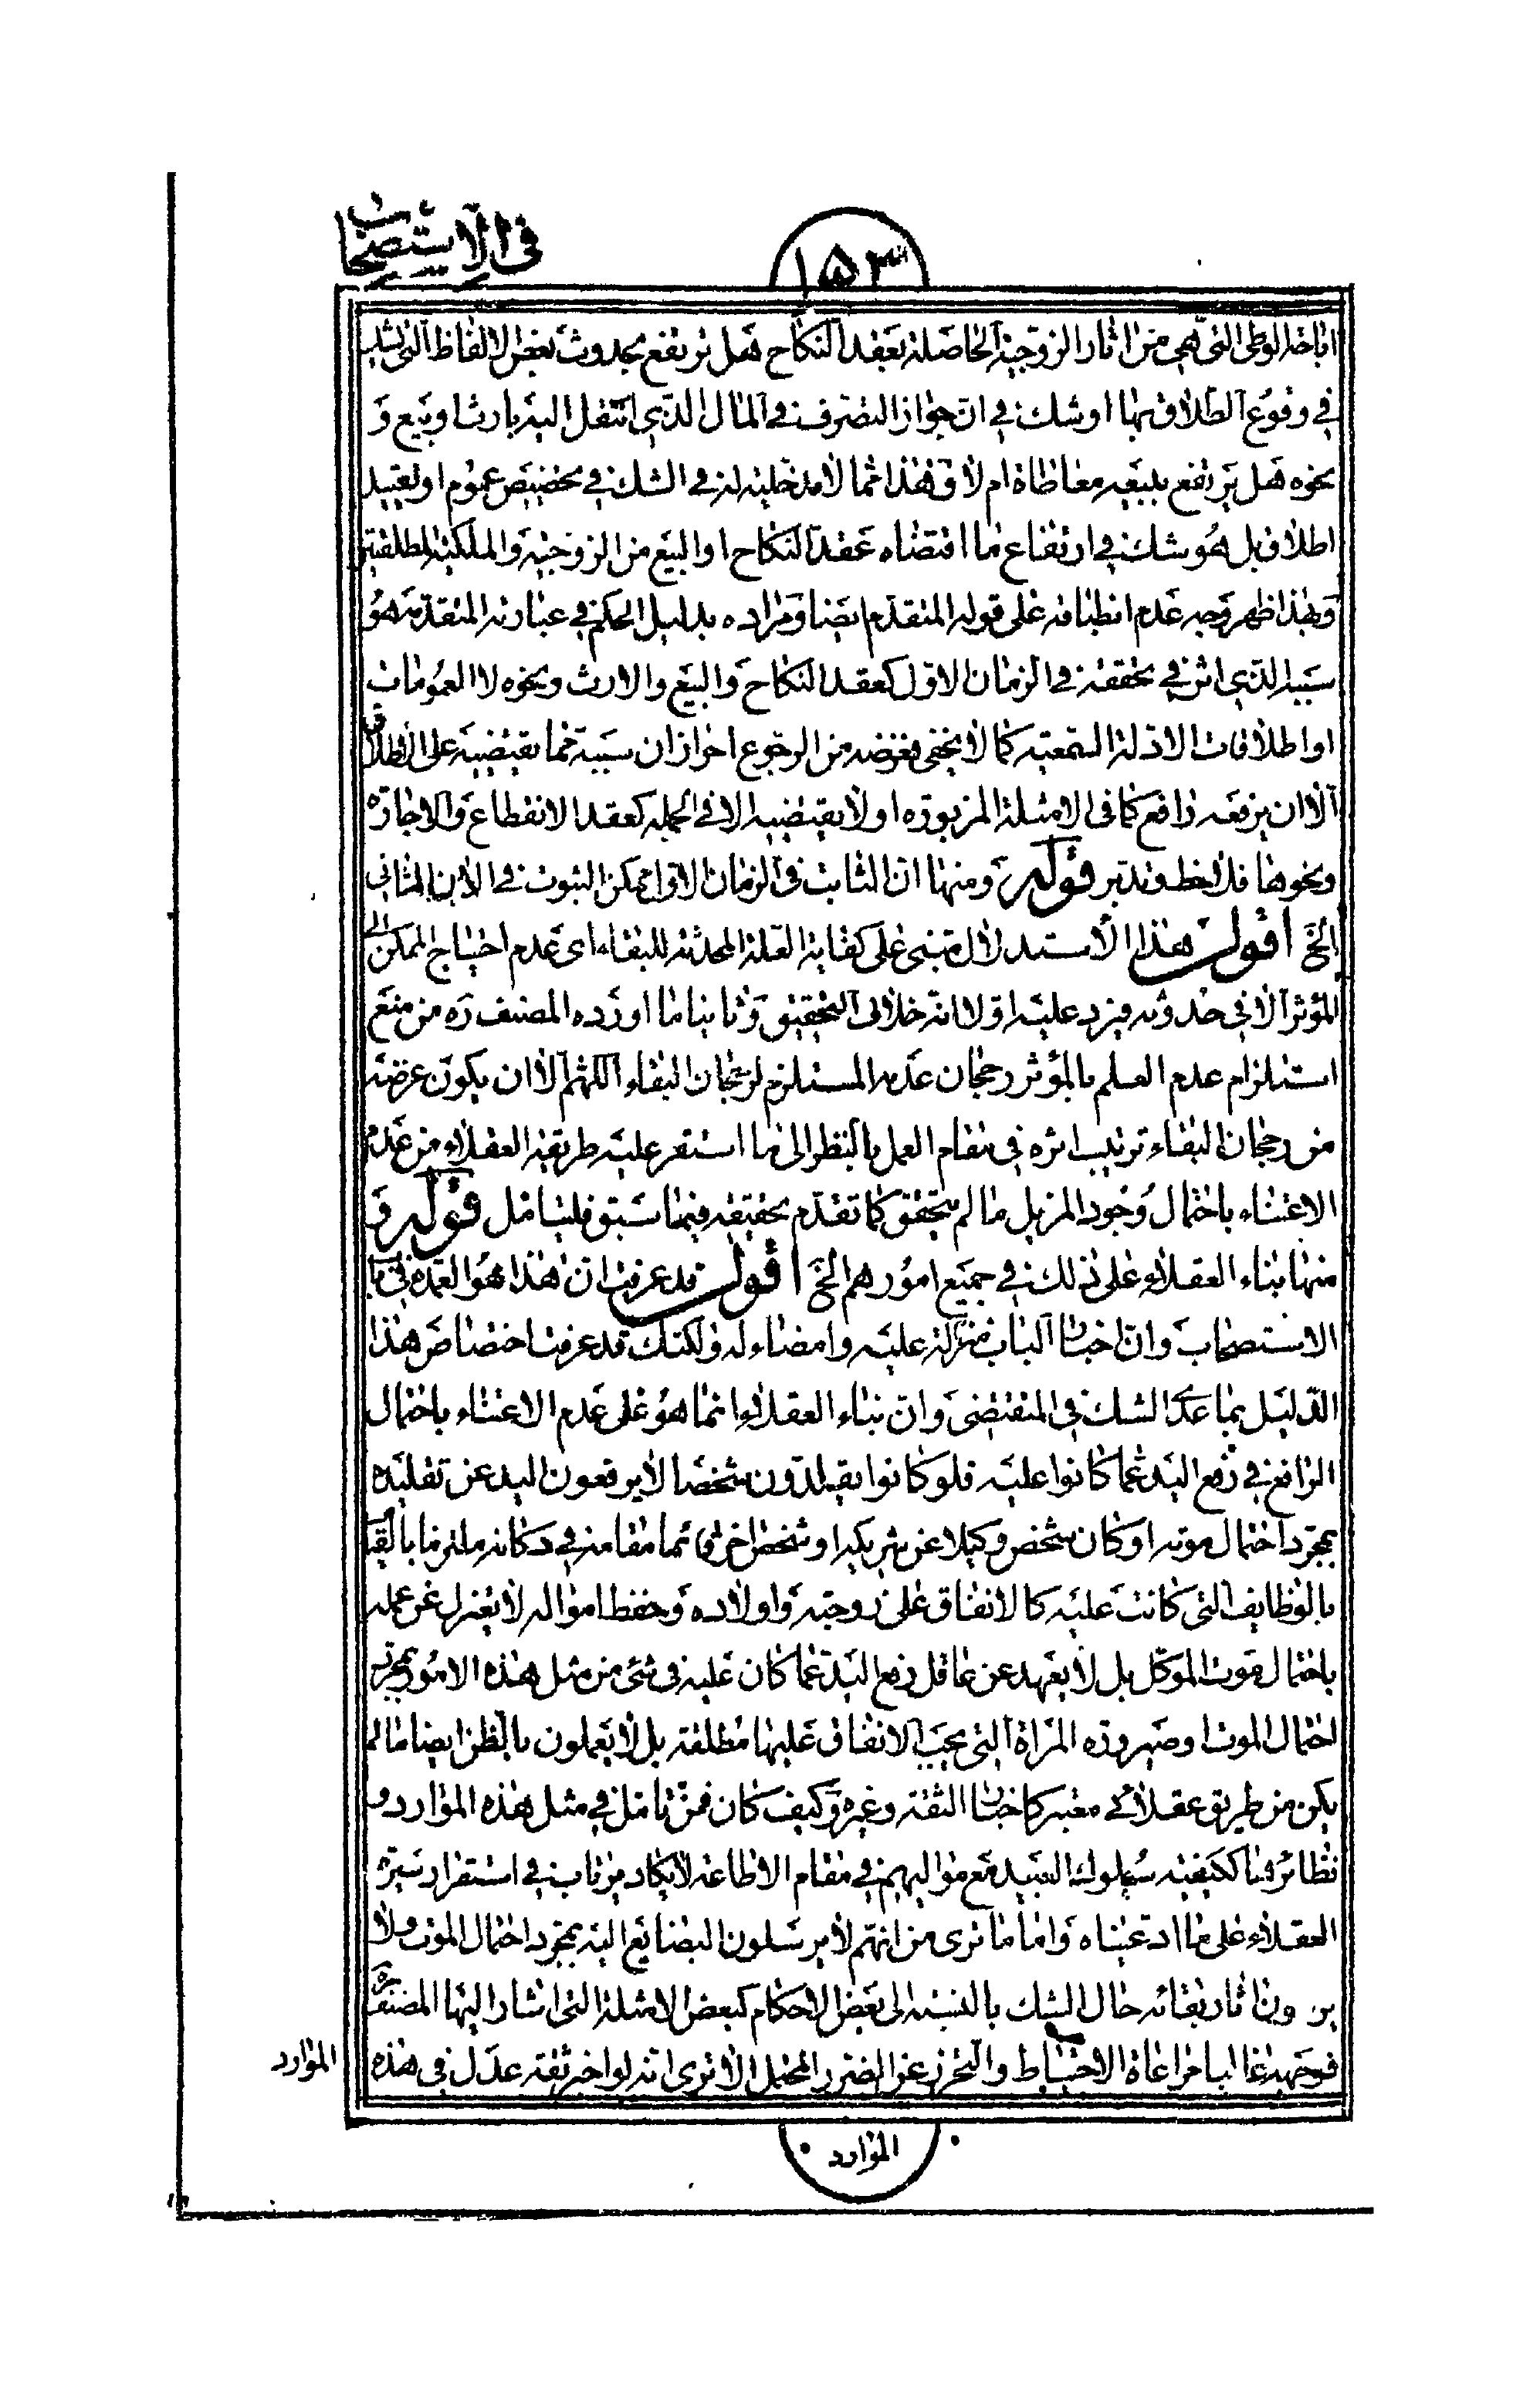 في الاستصحاب
١٥٣
اباحة الوطى التى هى من اثار الزوجية الحاصلة بعقد النكاح هل ترتفع بحدوث بعض الالفاظ التى يشك
في وقوع الطلاق بها او شك في ان جواز التصرف في المال الذي انتقل اليه بارث او بيع و
نحوه هل يرتفع ببيعه معاطاة ام لا فهذا مما لا مدخلية له في الشك في تخصيص عموم او تقييد
اطلاق بل هو شك في ارتفاع ما اقتضاه عقد النكاح او البيع من الزوجية والملكية المطلقتين
وبهذا ظهر وجه عدم انطباقه على قوله المتقدم ايضا ومراده بدليل الحكم في عبارته المتقدمة هو
سببه الذي اثر في تحققه في الزمان الاول كعقد النكاح والبيع والارث ونحوه لا العمومات
او اطلاقات الادلة السمعية كما لا يخفى فغرضه من الرجوع احراز ان سببه مما يقتضيه على الاطلاق
الا ان يرفعه رافع كما فى الامثلة المزبورة او لا يقتضيه الا في الجملة كعقد الانقطاع والاجارة
ونحوها فلاحظ وتدبر قوله ومنها ان الثابت فى الزمان الاول ممكن الثبوت في الان الثانى
الخ اقول هذا الاستدلال مبنى على كفاية العلة المحدثة للبقاء اى عدم احتياج الممكن الى
المؤثر الا في حدوثه فيرد عليه اولا انه خلاف التحقيق وثانيا ما اورده المصنف ره من منع
استلزام عدم العلم بالمؤثر رجحان عدمه المستلزم لرجحان البقاء اللهم الا ان يكون غرضه
من رجحان البقاء ترتيب اثره في مقام العمل بالنظر الى ما استقر عليه طريقة العقلاء من عدم
الاعتناء باحتمال وجود المزيل ما لم يتحقق كما تقدم تحقيقه فيما سبق فليتامل قوله و
منها بناء العقلاء على ذلك في جميع امورهم الخ اقول قد عرفت ان هذا هو العمدة في باب
الاستصحاب وان اخبار الباب منزلة عليه وامضاء له ولكنك قد عرفت اختصاص هذا
الدليل بما عدا الشك في المقتضى وان بناء العقلاء انما هو على عدم الاعتناء باحتمال
الرافع في رفع اليد عما كانوا عليه فلو كانوا يقلدون شخصا لا يرفعون اليد عن تقليده
بمجرد احتمال موته او كان شخص وكيلا عن شريكه او شخص اخر قائما مقامه في دكانه ملتزما بالقيام
بالوظايف التى كانت عليه كالانفاق على زوجته واولاده وحفظ امواله لا يعزل عن عمله
باحتمال موت الموكل بل لا يعهد عن عاقل رفع اليد عما كان عليه فى شئ من مثل هذه الامور بمجرد
احتمال الموت او صيرورة المراة التى يجب الانفاق عليها مطلقة بل لا يعملون بالظن ايضا ما لم
يكن من طريق عقلائى معتبر كاخبار الثقة وغيره وكيف كان فمن تامل في مثل هذه الموارد و
نظائرها ككيفية سلوك العبيد مع مواليهم في مقام الاطاعة لا يكاد يرتاب في استقرار سيرة
العقلاء على ما ادعيناه واما ما ترى من انهم لا يرسلون البضايع اليه بمجرد احتمال الموت ولا
يرتبون اثار بقائه حال الشك بالنسبة الى بعض الاحكام كبعض الامثلة التى اشار اليها المصنف ره
فوجهه غالبا مراعاة الاحتياط والتحرز عن الضرر المحتمل الا ترى انه لو اخبر ثقة عدل فى هذه
الموارد
الموارد